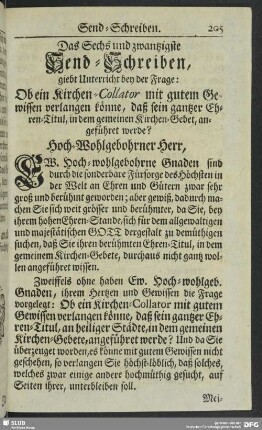 Send-Schreiben. 205
Das Sechs und zwantzigste
Send-Schreiben,
giebt Unterricht bey der Frage:
Ob ein Kirchen-Collator mit gutem Ge-
wissen verlangen könne, daß sein gantzer Eh-
ren-Titul, in dem gemeinen Kirchen-Gebet, an-
geführet werde?
Hoch-Wohlgebohrner Herr,
EW. Hoch-wohlgebohrne Gnaden sind
durch die sonderbare Fürsorge des Höchsten in
der Welt an Ehren und Gütern zwar sehr
groß und berühmt geworden; aber gewiß, dadurch ma-
chen Sie sich weit grösser und berühmter, da Sie, bey
ihrem hohen Ehren-Stande, sich für dem allgewaltigen
und majestätischen GOTT dergestalt zu demüthigen
suchen, daß Sie ihren berühmten Ehren-Titul, in dem
gemeinem Kirchen-Gebete, durchaus nicht gantz wol-
len angeführet wissen.
Zweiffels ohne haben Ew. Hoch-wohlgeb.
Gnaden, ihrem Hertzen und Gewissen die Frage
vorgelegt: Ob ein Kirchen-Collator mit gutem
Gewissen verlangen könne, daß sein gantzer Eh-
ren-Titul, an heiliger Städte, in dem gemeinen
Kirchen-Gebete, angeführet werde? Und da Sie
überzeuget worden, es könne mit gutem Gewissen nicht
geschehen, so verlangen Sie höchst-löblich, daß solches,
welches zwar einige andere hochmüthig gesucht, auf
Seiten ihrer, unterbleiben soll.
Mei-
SLUB
DFG